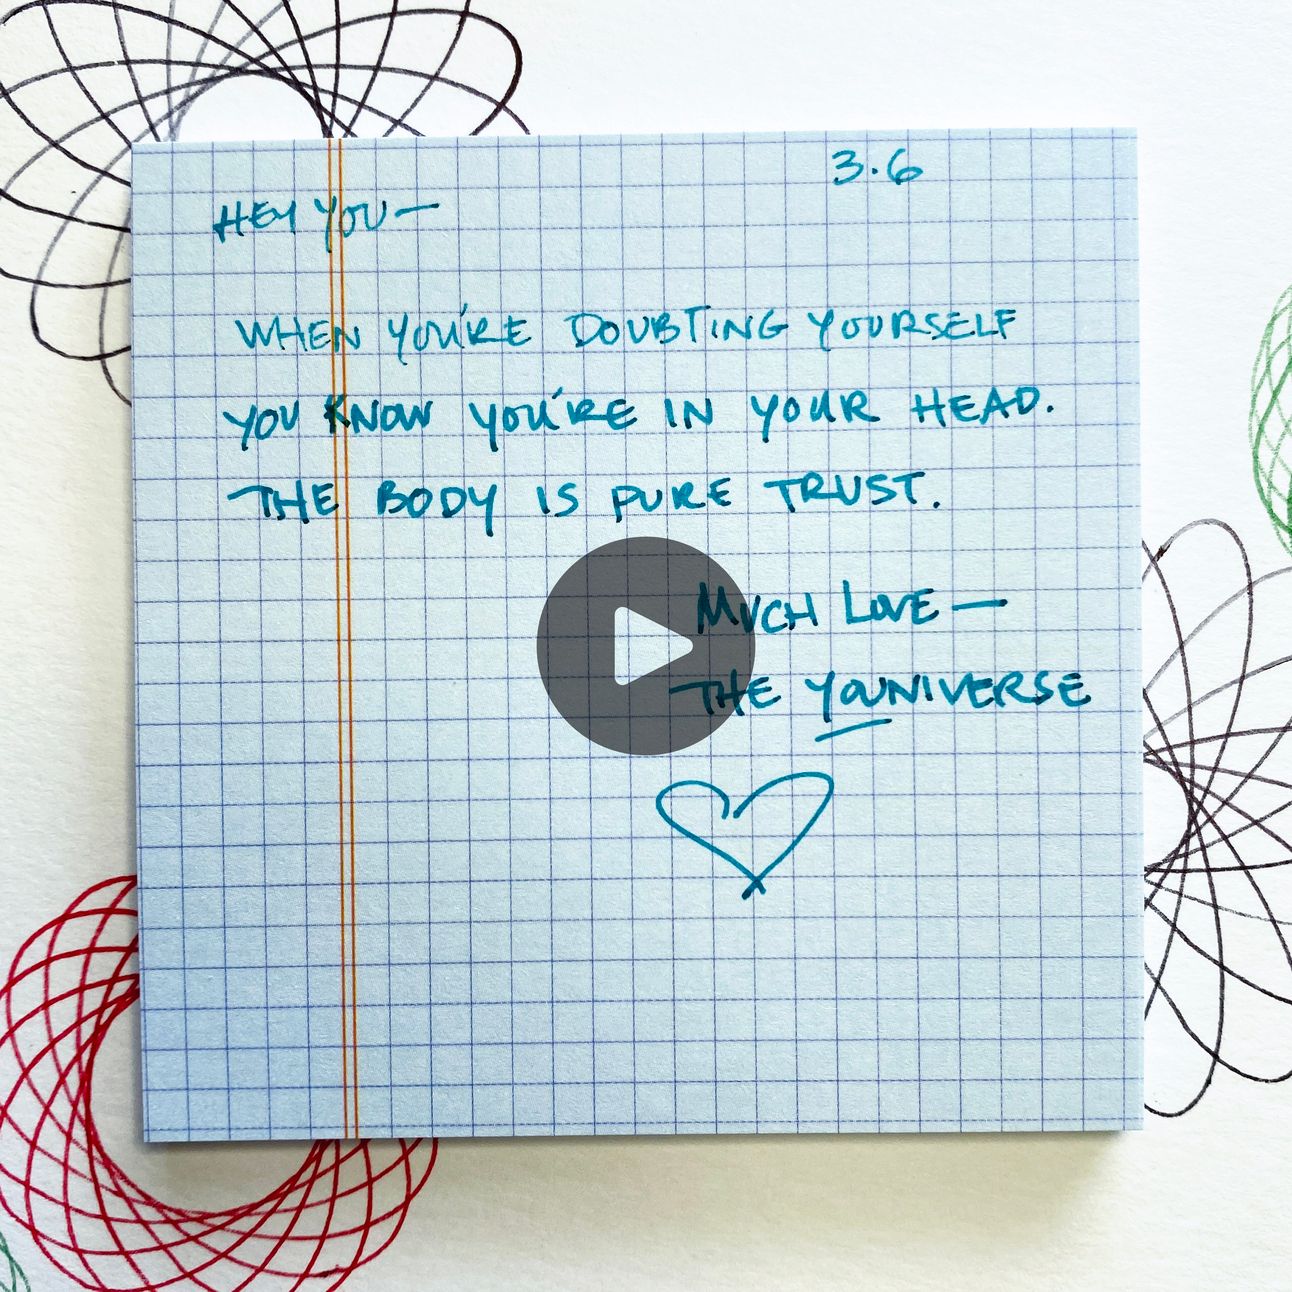 3.6
HEY YOU—
WHEN YOU'RE DOUBTING YOURSELF
YOU KNOW YOU'RE IN YOUR HEAD.
THE BODY IS PURE TRUST.
MUCH LOVE—
THE YOUNIVERSE